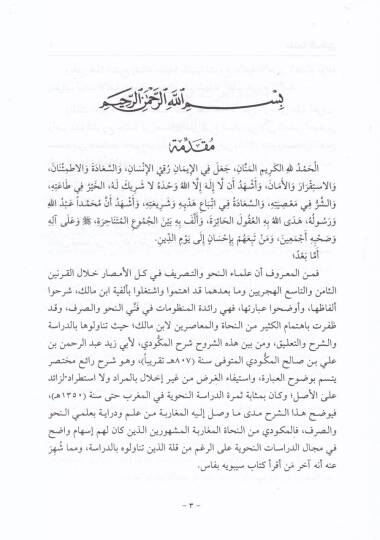 بِسْمِ اللَّهِ الرَّحْمَٰنِ الرَّحِيمِ
مُقَدِّمَة
الْحَمْدُ للهِ الكَرِيمِ المَنَّانِ، جَعَلَ فِي الإِيمَانِ رُقِيَّ الإِنْسَانِ، وَالسَّعَادَةَ وَالاطْمِئْنَانَ،
وَالاسْتِقْرَارَ وَالأَمَانَ، وَأَشْهَدُ أَن لَّا إِلَهَ إِلَّا اللهُ وَحْدَهُ لَا شَرِيكَ لَهُ، الخَيْرُ فِي طَاعَتِهِ،
وَالشَّرُّ فِي مَعْصِيَتِهِ، وَالسَّعَادَةُ فِي اتِّبَاعِ هَدْيِهِ وَشَرِيعَتِهِ، وَأَشْهَدُ أَنَّ مُحَمَّداً عَبْدُ اللهِ
وَرَسُولُهُ، هَدَى اللهُ بِهِ العُقُولَ الحَائِرَةَ، وَأَلَّفَ بِهِ بَيْنَ الجُمُوعِ المُتَنَاحِرَةِ، ﷺ وَعَلَى آلِهِ
وَصَحْبِهِ أَجْمَعِينَ، وَمَنْ تَبِعَهُمْ بِإِحْسَانٍ إِلَى يَوْمِ الدِّينِ.
أَمَّا بَعْدُ؛
فمـن المعـروف أن علمـاء النحـو والتصريف فـي كـل الأمصـار خـلال القرنين
الثامن والتاسع الهجريين وما بعدهما قد اهتموا واشتغلوا بألفية ابن مالك، شرحوا
ألفاظها، وأوضحوا عبارتها، فهي رائدة المنظومات في فنَّي النحو والصرف، وقد
ظفرت باهتمام الكثير من النحاة والمعاصرين لابن مالك؛ حيث تناولوها بالدراسة
والشرح والتعليق، ومن بين هذه الشروح شرح المكُودي، لأبي زيد عبد الرحمن بن
علي بن صالح المكُودي المتوفى سنة (٨٠٧هـ تقريباً)، وهو شرح رائع مختصر
يتسم بوضوح العبارة، واستيفاء الغرض من غير إخلال بالمراد ولا استطراد-لزائد
على الأصل؛ وكان بمثابة ثمرة الدراسة النحوية في المغرب حتى سنة (١٣٥٠هـ)،
فيوضح هـذا الشرح مدى ما وصل إليه المغاربة من علم ودراية بعلمي النحو
والصرف، فالمكودي من النحاة المغاربة المشهورين الذين كان لهم إسهام واضح
في مجال الدراسات النحوية على الرغم من قلة الذين تناولوه بالدراسة، ومما شُهِرَ
عنه أنه آخر مَن أقرأ كتاب سيبويه بفاس.
- ٣ -